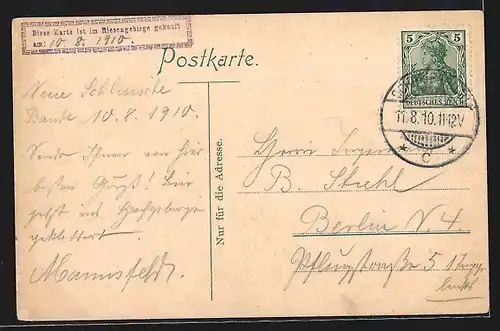 Diese Karte ist im Riesengebirge gekauft
am: 10. 8. 1910.
Postkarte.
5 5
DEUTSCHES REICH
11.8.10.11-12V
* c *
Neue Schlesische
Baude 10.8.1910.
Sende Ihnen von hier
besten Gruß! Bin
jetzt ins Hochgebirge
geklettert.
Mannsfeldt.
Nur für die Adresse.
Herrn
B. Strehl
Berlin N. 4.
Pflugstraße 5
links